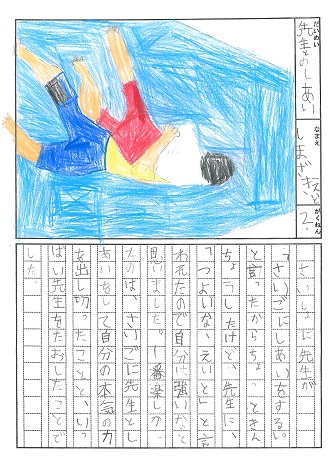 だいめい
先生とのしあい
なまえ
しまざきえいと
がくねん
2
さいしょに先生が
「さいごにしあいをする。」
と言ったからちょっときん
ちょうしたけど、先生に、
「つよいな、えいと」と言
われたので自分は強いなと
思いました。一番楽しか
たのは、さいごに先生とし
あいをして自分の本気の力
を出し切ったことと、いっ
ぱい先生をたおしたことで
した。